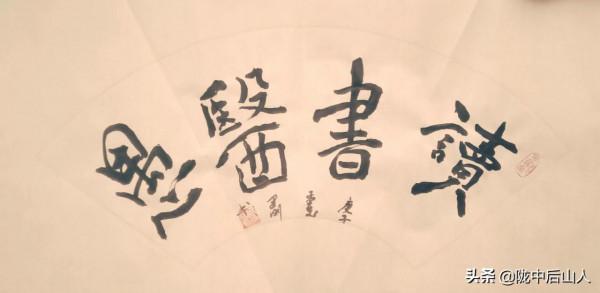 讀書醫愚
庚子
头条 @陇中后山人